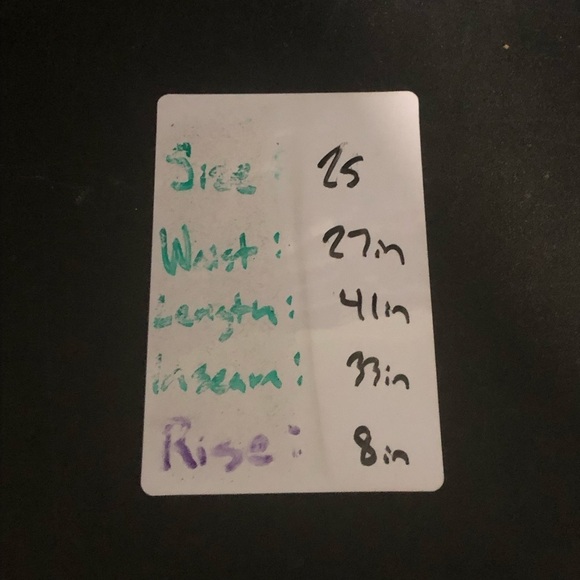 Size: 25
Waist: 27in
Length: 41in
Inseam: 33in
Rise: 8in